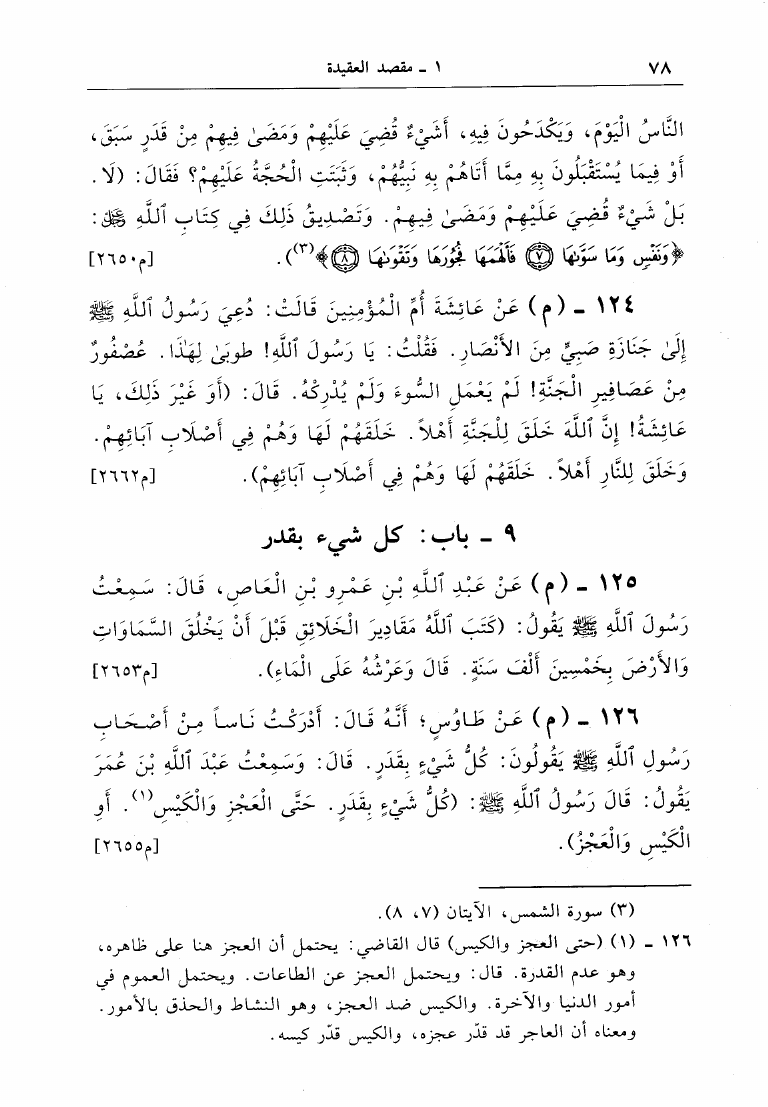 ٧٨ ١ ـ مقصد العقيدة
النَّاسُ الْيَوْمَ، وَيَكْدَحُونَ فِيهِ، أَشَيْءٌ قُضِيَ عَلَيْهِمْ وَمَضَىٰ فِيهِمْ مِنْ قَدَرٍ سَبَقَ،
أَوْ فِيمَا يُسْتَقْبَلُونَ بِهِ مِمَّا أَتَاهُمْ بِهِ نَبِيُّهُمْ، وَثَبَتَتِ الْحُجَّةُ عَلَيْهِمْ؟ فَقَالَ: (لَا.
بَلْ شَيْءٌ قُضِيَ عَلَيْهِمْ وَمَضَىٰ فِيهِمْ. وَتَصْدِيقُ ذَلِكَ فِي كِتَابِ ٱللَّهِ ﷺ:
﴿وَنَفْسٍ وَمَا سَوَّىٰهَا ۝٧ فَأَلْهَمَهَا فُجُورَهَا وَتَقْوَىٰهَا ۝٨﴾(٣)). [م٢٦٥٠]
١٢٤ ـ (م) عَنْ عَائِشَةَ أُمِّ الْمُؤْمِنِينَ قَالَتْ: دُعِيَ رَسُولُ ٱللَّهِ ﷺ
إِلَىٰ جَنَازَةِ صَبِيٍّ مِنَ الأَنْصَارِ. فَقُلْتُ: يَا رَسُولَ ٱللَّهِ! طوبَىٰ لِهَٰذَا. عُصْفُورٌ
مِنْ عَصَافِيرِ الْجَنَّةِ! لَمْ يَعْمَلِ السُّوءَ وَلَمْ يُدْرِكْهُ. قَالَ: (أَوَ غَيْرَ ذَلِكَ، يَا
عَائِشَةُ! إِنَّ ٱللَّهَ خَلَقَ لِلْجَنَّةِ أَهْلاً. خَلَقَهُمْ لَهَا وَهُمْ فِي أَصْلَابِ آبَائِهِمْ.
وَخَلَقَ لِلنَّارِ أَهْلاً. خَلَقَهُمْ لَهَا وَهُمْ فِي أَصْلَابِ آبَائِهِمْ). [م٢٦٦٢]
٩ ـ باب: كل شيء بقدر
١٢٥ ـ (م) عَنْ عَبْدِ ٱللَّهِ بْنِ عَمْرِو بْنِ الْعَاصِ، قَالَ: سَمِعْتُ
رَسُولَ ٱللَّهِ ﷺ يَقُولُ: (كَتَبَ ٱللَّهُ مَقَادِيرَ الْخَلَائِقِ قَبْلَ أَنْ يَخْلُقَ السَّمَاوَاتِ
وَالأَرْضَ بِخَمْسِينَ أَلْفَ سَنَةٍ. قَالَ وَعَرْشُهُ عَلَى الْمَاءِ). [م٢٦٥٣]
١٢٦ ـ (م) عَنْ طَاوُسٍ؛ أَنَّهُ قَالَ: أَدْرَكْتُ نَاساً مِنْ أَصْحَابِ
رَسُولِ ٱللَّهِ ﷺ يَقُولُونَ: كُلُّ شَيْءٍ بِقَدَرٍ. قَالَ: وَسَمِعْتُ عَبْدَ ٱللَّهِ بْنَ عُمَرَ
يَقُولُ: قَالَ رَسُولُ ٱللَّهِ ﷺ: (كُلُّ شَيْءٍ بِقَدَرٍ. حَتَّى الْعَجْزِ وَالْكَيْسِ(١). أَوِ
الْكَيْسِ وَالْعَجْزِ). [م٢٦٥٥]
(٣) سورة الشمس، الآيتان (٧، ٨).
١٢٦ ـ (١) (حتى العجز والكيس) قال القاضي: يحتمل أن العجز هنا على ظاهره،
وهو عدم القدرة. قال: ويحتمل العجز عن الطاعات. ويحتمل العموم في
أمور الدنيا والآخرة. والكيس ضد العجز، وهو النشاط والحذق بالأمور.
ومعناه أن العاجر قد قدّر عجزه، والكيس قدّر كيسه.